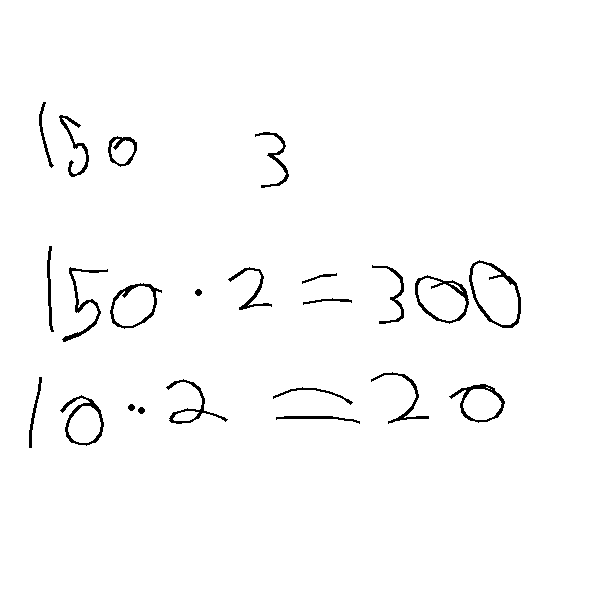 150 3
150 · 2 = 300
10 ·· 2 = 20